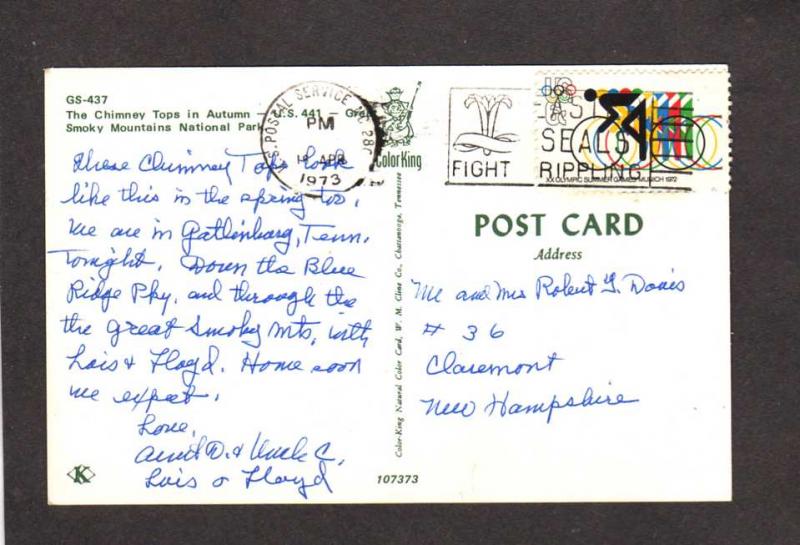 GS-437
The Chimney Tops in Autumn U.S. 441 Great
Smoky Mountains National Park
These Chimney Tops look
like this in the spring too,
We are in Gatlinburg, Tenn.
Tonight. Down the Blue
Ridge Pky, and through the
the Great Smoky Mts, with
Lois & Floyd. Home soon
we expect.
Love,
Aunt D. & Uncle C,
Lois & Floyd
K
U.S. POSTAL SERVICE
PM
APR
1973
Color King
FIGHT
EASTER SEALS
CRIPPLING
XX OLYMPIC SUMMER GAMES MUNICH 1972
Color-King Natural Color Card, W. M. Cline Co., Chattanooga, Tennessee
107373
POST CARD
Address
Mr and Mrs Robert G. Davis
# 36
Claremont
New Hampshire